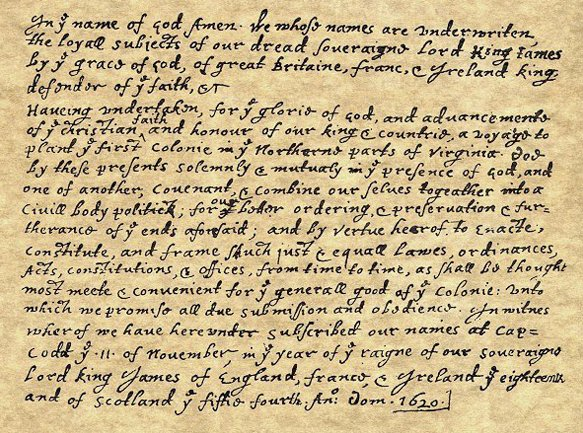 In yͤ name of god Amen. We whose names are underwriten,
the loyall subjects of our dread soveraigne Lord King James
by yͤ grace of God, of great Britaine, franc, & Ireland king,
defender of yͤ faith, &c
Haveing undertaken, for yͤ glorie of God, and advancemente
of yͤ christian faith and honour of our king & countrie, a voyage to
plant yͤ first colonie in yͤ Northerne parts of Virginia. Doe
by these presents solemnly & mutualy in yͤ presence of God, and
one of another, covenant, & combine our selves togeather into a
Civill body politick; for our better ordering, & preservation & fur=
therance of yͤ ends aforesaid; and by vertue hearof, to enacte,
constitute, and frame such just & equall Lawes, ordinances,
Acts, constitutions, & offices, from time to time, as shall be thought
most meete & convenient for yͤ generall good of yͤ Colonie: unto
which we promise all due submission and obedience. In witnes
wherof we have hereunder subscribed our names at Cap=
Codd yͤ .11. of November, in yͤ year of yͤ raigne of our soveraigne
Lord king James of England, france, & Ireland yͤ eighteenth
and of Scotland yͤ fiftie fourth. Anͦ: Dom. 1620.]